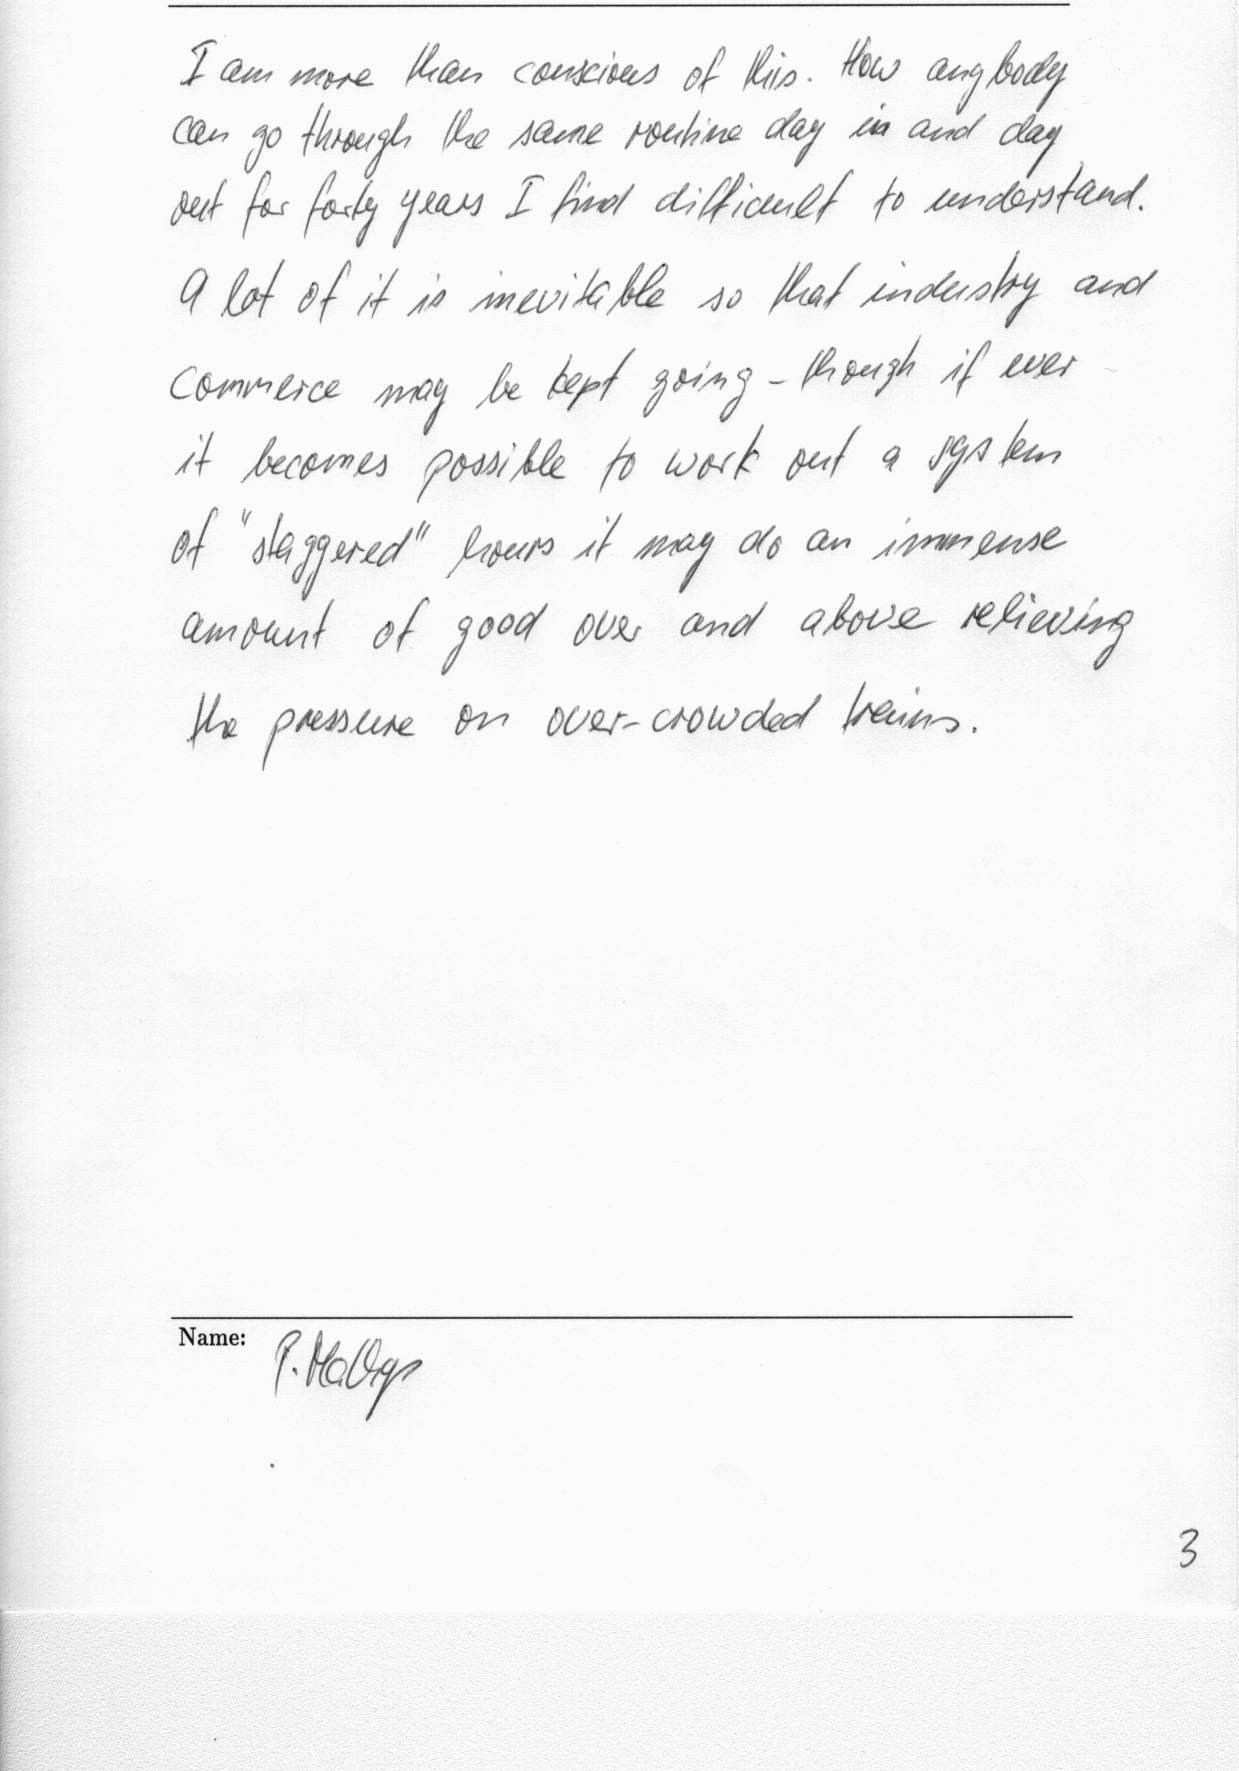 I am more than conscious of this. How anybody
can go through the same routine day in and day
out for forty years I find difficult to understand.
A lot of it is inevitable so that industry and
commerce may be kept going - though if ever
it becomes possible to work out a system
of "staggered" hours it may do an immense
amount of good over and above relieving
the pressure on over-crowded trains.
Name: P.
3